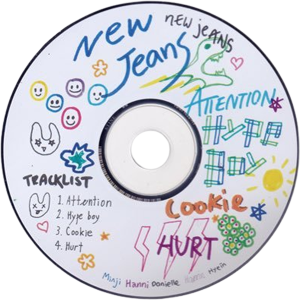 New
Jeans
new jeans
ATTENTION
HYPE
BOY
COOKIE
HURT
TRACKLIST
1. Attention
2. Hype boy
3. Cookie
4. Hurt
Minji Hanni Danielle Haerin Hyein